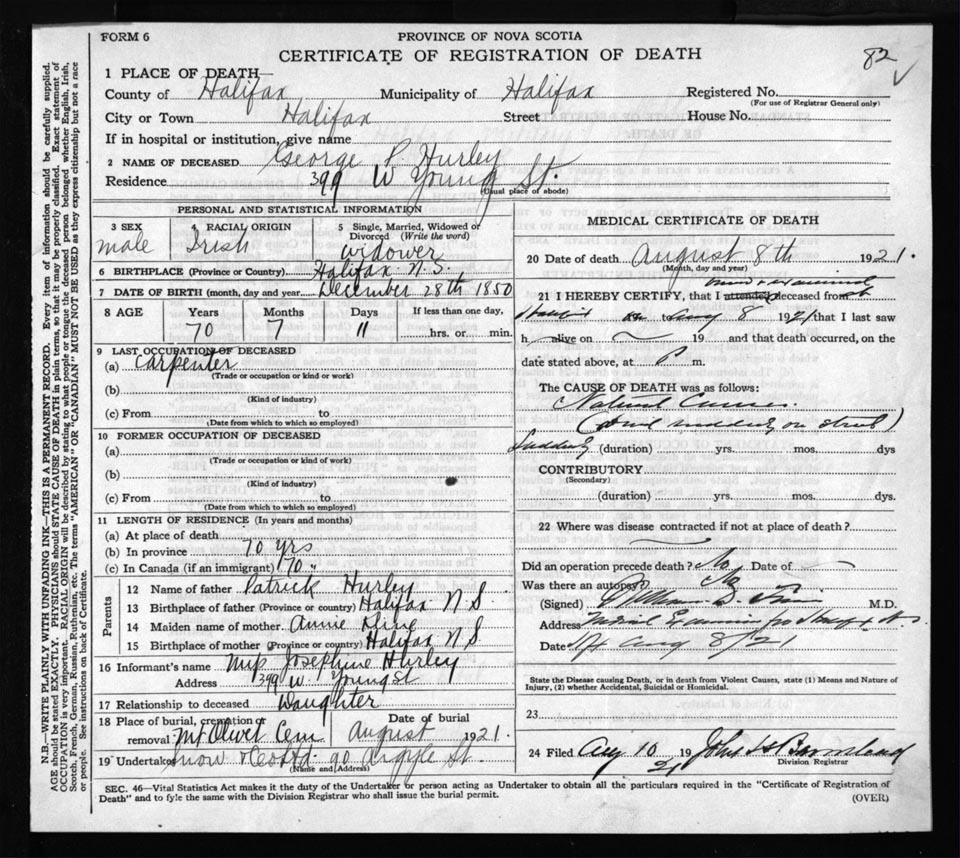 FORM 6
PROVINCE OF NOVA SCOTIA
CERTIFICATE OF REGISTRATION OF DEATH
82 ✓
1 PLACE OF DEATH—
County of Halifax Municipality of Halifax Registered No.
(For use of Registrar General only)
City or Town Halifax Street House No.
If in hospital or institution, give name
2 NAME OF DECEASED George P. Hurley
Residence 399 W Young St.
(Usual place of abode)
PERSONAL AND STATISTICAL INFORMATION
3 SEX 4 RACIAL ORIGIN 5 Single, Married, Widowed or Divorced (Write the word)
male Irish widower
6 BIRTHPLACE (Province or Country) Halifax N.S.
7 DATE OF BIRTH (month, day and year) December 28th 1850
8 AGE Years Months Days If less than one day,
70 7 11 hrs. or min.
9 LAST OCCUPATION OF DECEASED
(a) Carpenter
(Trade or occupation or kind or work)
(b)
(Kind of industry)
(c) From to
(Date from which to which so employed)
10 FORMER OCCUPATION OF DECEASED
(a)
(Trade or occupation or kind of work)
(b)
(Kind of industry)
(c) From to
(Date from which to which so employed)
11 LENGTH OF RESIDENCE (In years and months)
(a) At place of death
(b) In province 70 yrs
(c) In Canada (if an immigrant) 70 "
Parents
12 Name of father Patrick Hurley
13 Birthplace of father (Province or country) Halifax N S
14 Maiden name of mother Annie
15 Birthplace of mother (Province or country) Halifax N S
16 Informant's name Miss Josephine Hurley
Address 399 W. Young St
17 Relationship to deceased Daughter
18 Place of burial, cremation or removal Mt Olivet Cem Date of burial August 1921.
19 Undertaker Snow & Co Ltd 90 Argyle St.
(Name and Address)
MEDICAL CERTIFICATE OF DEATH
20 Date of death August 8th 1921.
(Month, day and year)
21 I HEREBY CERTIFY, that I attended deceased from
to Aug 8 1921 that I last saw
h alive on 19 and that death occurred, on the
date stated above, at P m.
The CAUSE OF DEATH was as follows:
Natural Causes.
(Died suddenly on street)
Suddenly (duration) yrs. mos. dys
CONTRIBUTORY
(Secondary)
(duration) yrs. mos. dys.
22 Where was disease contracted if not at place of death?
Did an operation precede death? No Date of
Was there an autopsy? No
(Signed) M.D.
Address Medical Examiner
Date Aug 8/21
State the Disease causing Death, or in death from Violent Causes, state (1) Means and Nature of Injury, (2) whether Accidental, Suicidal or Homicidal.
23
24 Filed Aug 10 1921 John
Division Registrar
SEC. 46—Vital Statistics Act makes it the duty of the Undertaker or person acting as Undertaker to obtain all the particulars required in the "Certificate of Registration of
Death" and to fyle the same with the Division Registrar who shall issue the burial permit.
(OVER)
N.B.—WRITE PLAINLY WITH UNFADING INK—THIS IS A PERMANENT RECORD. Every item of information should be carefully supplied.
AGE should be stated EXACTLY. PHYSICIANS should STATE CAUSE OF DEATH in plain terms, so that it may be properly classified. Exact statement of
OCCUPATION is very important. RACIAL ORIGIN will be described by stating to what people or tongue the deceased person belonged, whether English, Irish,
Scotch, French, German, Russian, Ruthenian, etc. The terms "AMERICAN" or "CANADIAN" MUST NOT BE USED as they express citizenship but not a race
or people. See instructions on back of Certificate.